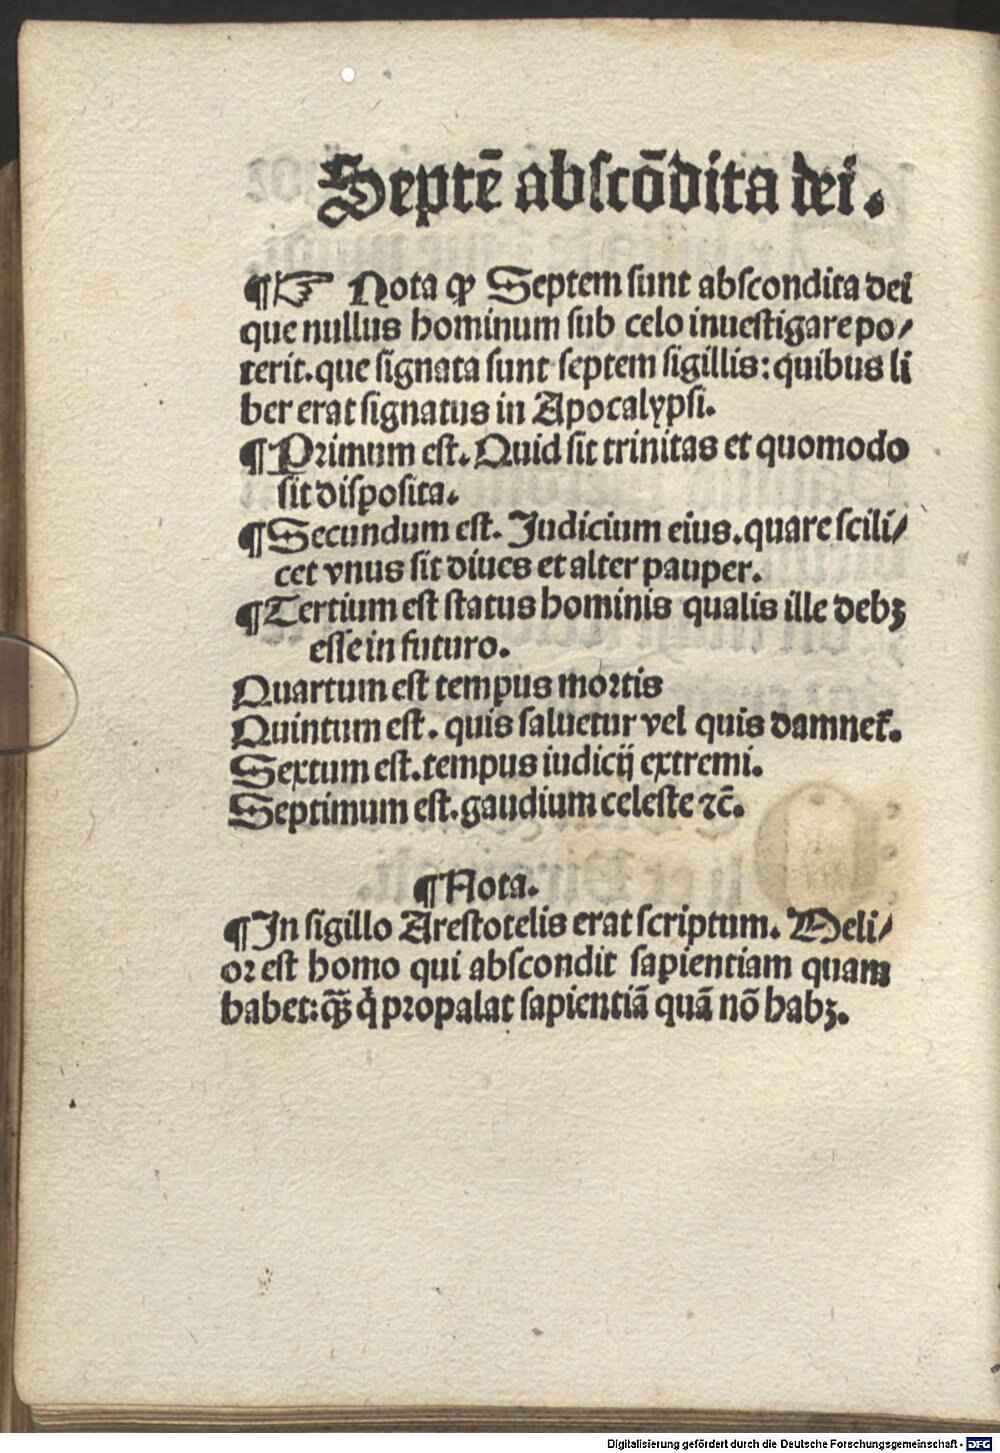 Septē abscōdita dei.
¶☞ Nota ꝙ Septem sunt abscondita dei
que nullus hominum sub celo inuestigare po⸗
terit. que signata sunt septem sigillis: quibus li
ber erat signatus in Apocalypsi.
¶Primum est. Quid sit trinitas et quomodo
sit disposita.
¶Secundum est. Judicium eius. quare scili⸗
cet vnus sit diues et alter pauper.
¶Tertium est status hominis qualis ille debꝫ
esse in futuro.
Quartum est tempus mortis
Quintum est. quis saluetur vel quis damnet̄.
Sextum est. tempus iudicij extremi.
Septimum est. gaudium celeste ⁊c̄.
¶Nota.
¶In sigillo Arestotelis erat scriptum. Meli⸗
or est homo qui abscondit sapientiam quam
habet: qᷓꝫ q̇ propalat sapientiā quā nō habꝫ.
Digitalisierung gefördert durch die Deutsche Forschungsgemeinschaft - DFG